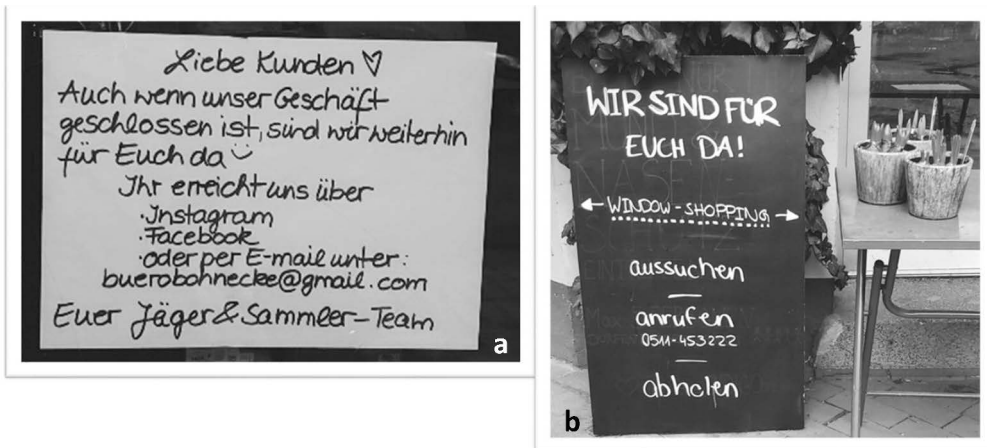 Liebe Kunden ♡
Auch wenn unser Geschäft
geschlossen ist, sind wir weiterhin
für Euch da
Ihr erreicht uns über
·Instagram
·Facebook
·oder per E-mail unter:
buerobohnecke@gmail.com
Euer Jäger & Sammler-Team
a
WIR SIND FÜR
EUCH DA!
← WINDOW-SHOPPING →
aussuchen
—
anrufen
0511-453222
—
abholen
b